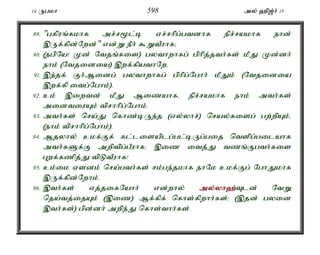 14 ருபமா 598 அல் ஹிஜ்ர் 15
89. "பகிரங்கமாக அச்சமூட்டி எச்சரிப்பவனாக நிச்சயமாக நான்
இருக்கின்றேன்" என்று நீர் கூறுவீராக!
90. (நபியே! முன் வேதங்களை) பலவாறாகப் பிரித்தவர்கள் மீது முன்னர்
நாம் (வேதனையை) இறக்கியவாறே,
91. இந்தக் குர்ஆனைப் பலவாறாகப் பிரிப்போர் மீதும் (வேதனையை
இறக்கி வைப்போம்).
92. உம் இறைவன் மீது ஆணையாக, நிச்சயமாக நாம் அவர்கள்
அனைவரையும் விசாரிப்போம்.
93. அவர்கள் செய்து கொண்டிருந்த (எல்லாச்) செயல்களைப் பற்றியும்,
(நாம் விசாரிப்போம்).
94. ஆதலால் உமக்குக் கட்டளையிடப்பட்டிருப்பதை வெளிப்படையாக
அவர்களுக்கு அறிவிப்பீராக; இணை வைத்து வணங்குபவர்களை
புறக்கணித்து விடுவீராக!
95. உம்மை ஏளனம் செய்பவர்கள் சம்பந்தமாக நாமே உமக்குப் போதுமாக
இருக்கின்றோம்.
96. இவர்கள் எத்தகையோர் என்றால் அல்லாஹ்வுடன் வேறு
தெய்வத்தையும் (இணை) ஆக்கிக் கொள்கிறார்கள்; (இதன் பலனை
இவர்கள்) பின்னர் அறிந்து கொள்வார்கள்.